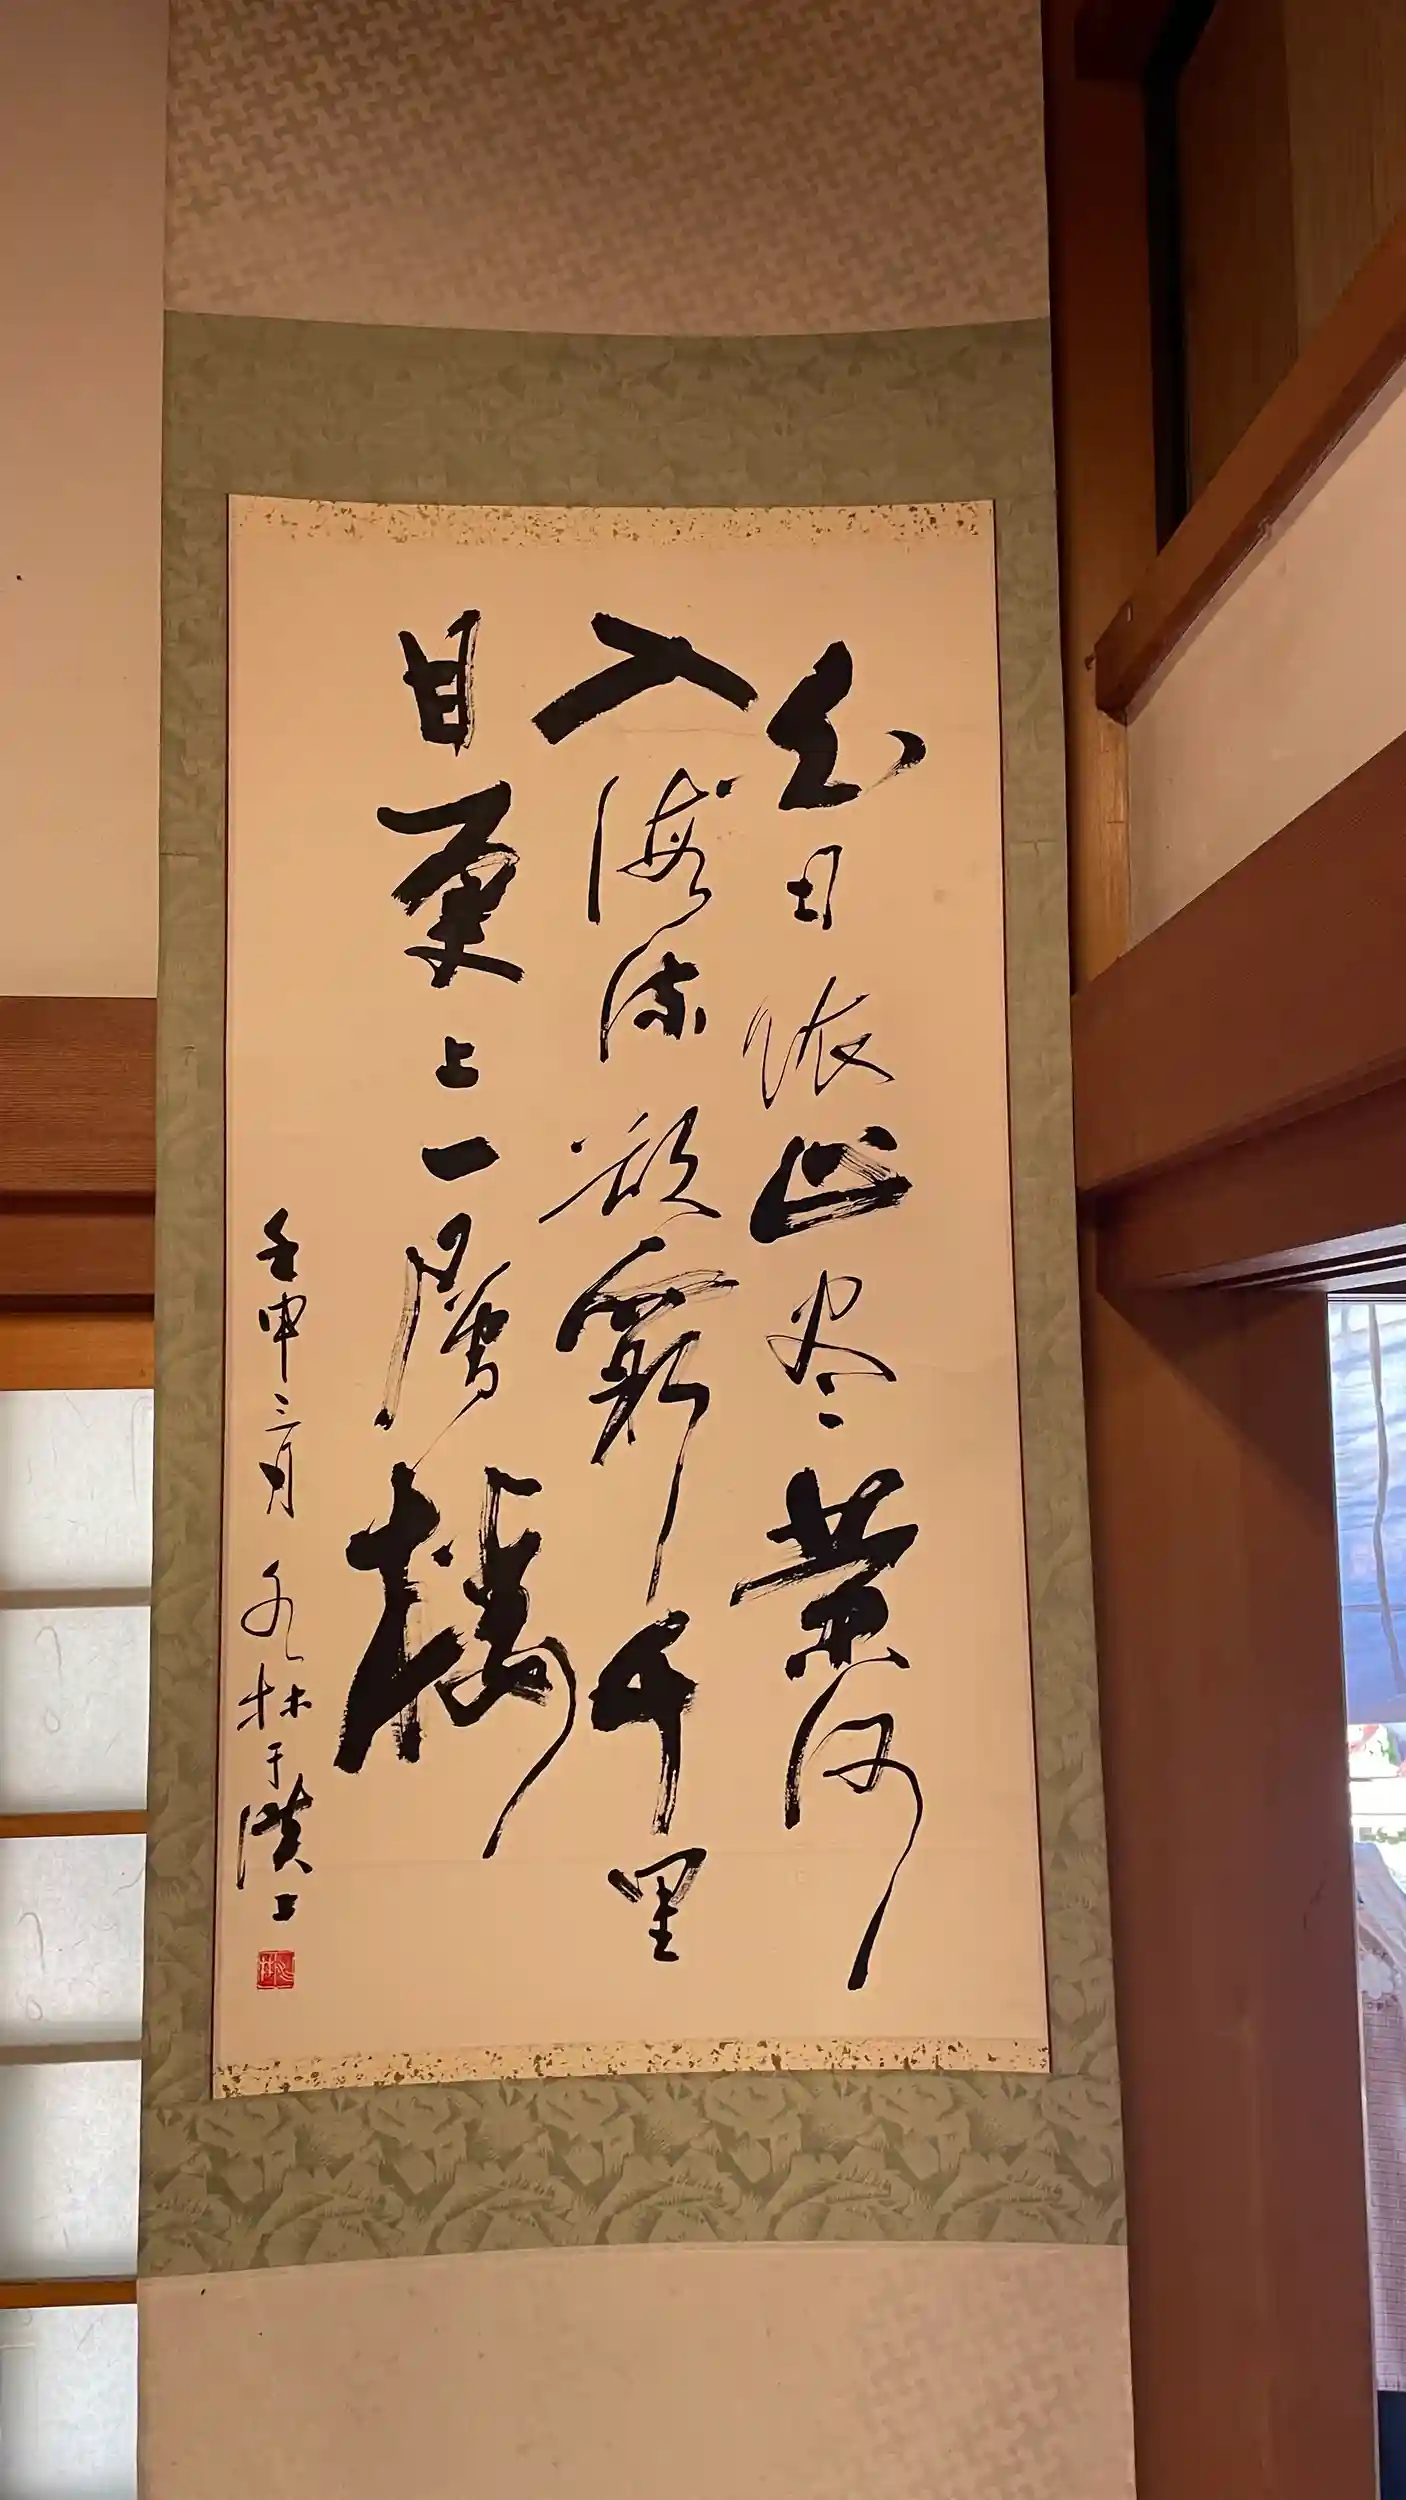 白日依山尽黄河
入海流欲窮千里
目更上一層楼
壬申三月 九林于漢上